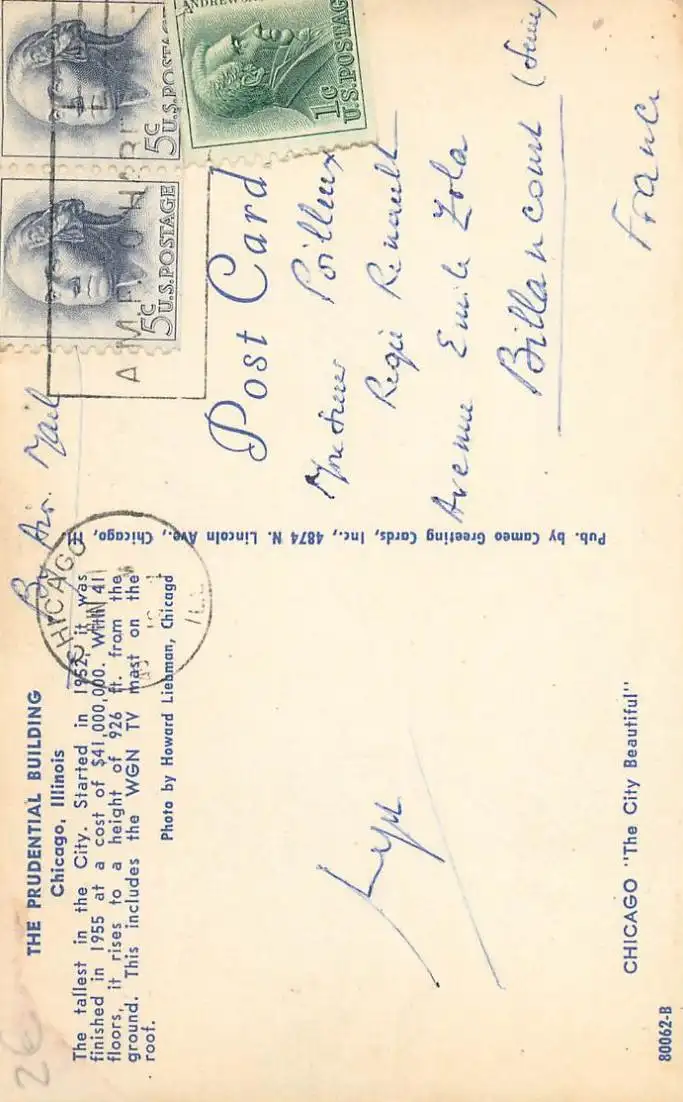 THE PRUDENTIAL BUILDING
Chicago, Illinois
The tallest in the City. Started in 1952, it was
finished in 1955 at a cost of $41,000,000. With 41
floors, it rises to a height of 926 ft. from the
ground. This includes the WGN TV mast on the
roof.
Photo by Howard Liebman, Chicago
CHICAGO "The City Beautiful"
80062-B
26
Pub. by Cameo Greeting Cards, Inc., 4874 N. Lincoln Ave., Chicago, Ill.
By Air Mail
CHICAGO
JAN
ILL
5c U.S.POSTAGE
5c U.S.POSTAGE
ANDREW
1c U.S.POSTAG
Post Card
Poilleux
Regie Renault
Avenue Emile Zola
Billancourt (Seine)
France